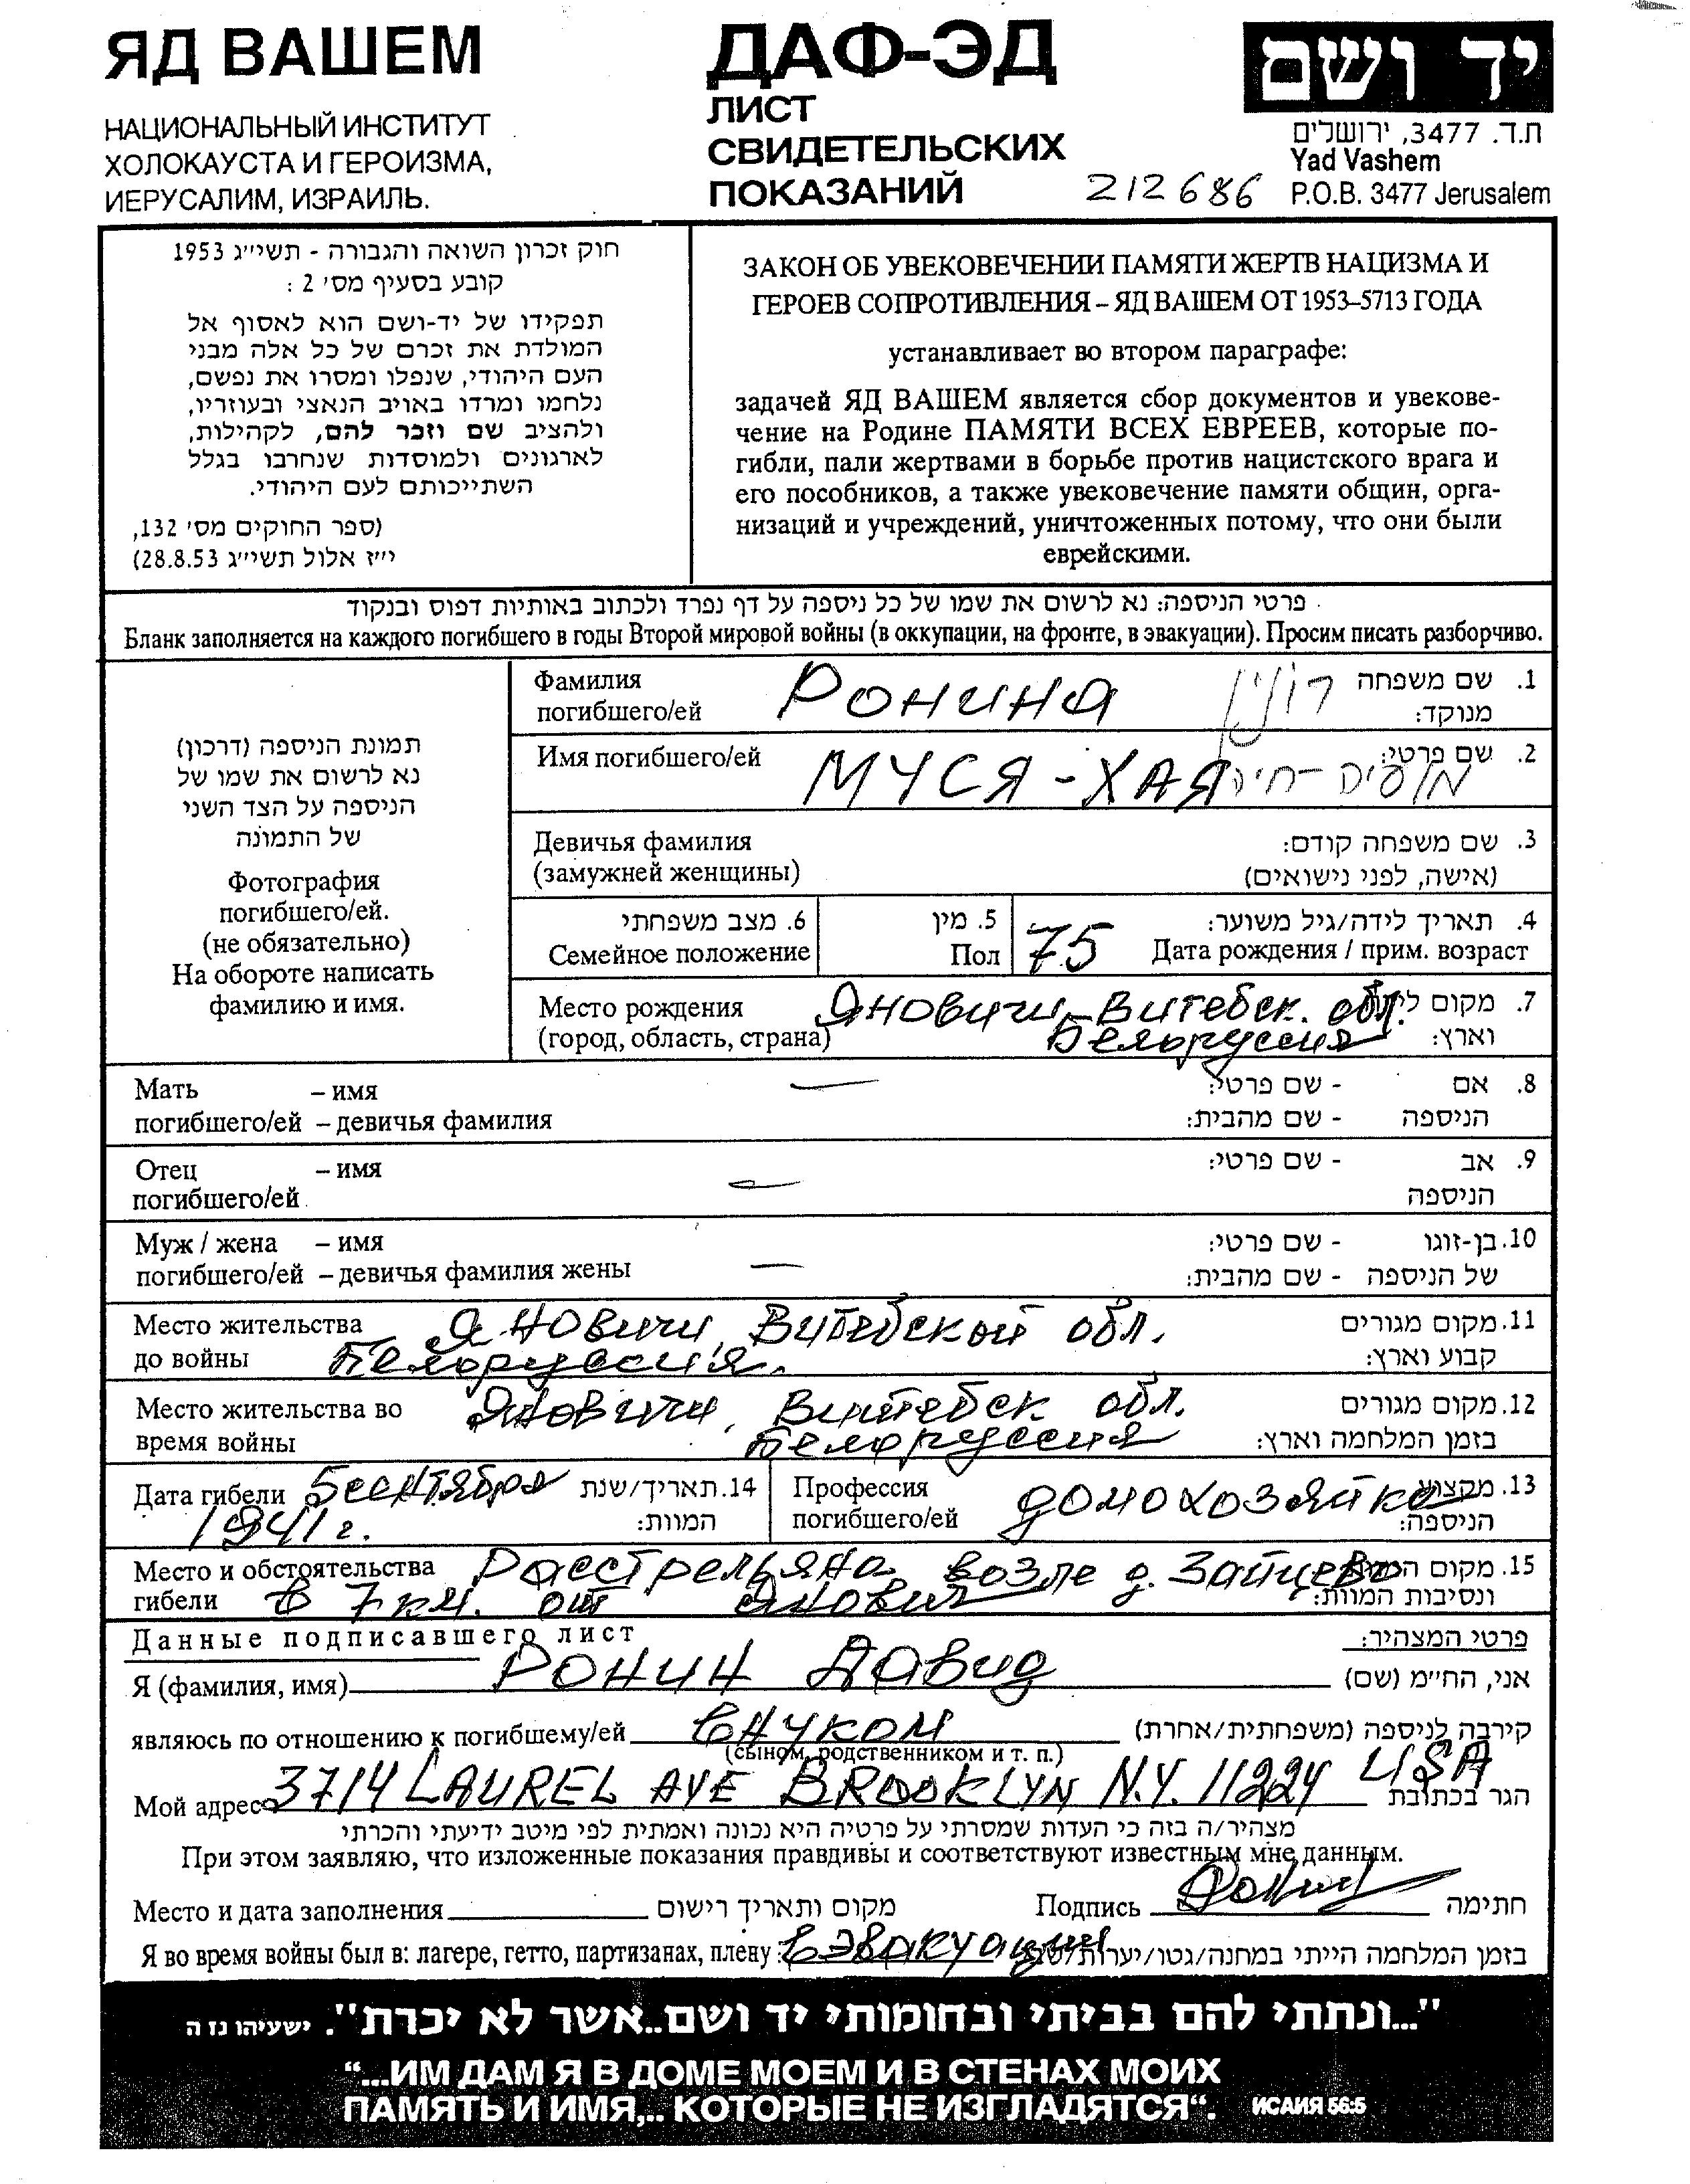 ЯД ВАШЕМ
НАЦИОНАЛЬНЫЙ ИНСТИТУТ
ХОЛОКАУСТА И ГЕРОИЗМА,
ИЕРУСАЛИМ, ИЗРАИЛЬ.
ДАФ-ЭД
ЛИСТ
СВИДЕТЕЛЬСКИХ
ПОКАЗАНИЙ
212686
יד ושם
ת.ד. 3477, ירושלים
Yad Vashem
P.O.B. 3477 Jerusalem
חוק זכרון השואה והגבורה - תשי״ג 1953
קובע בסעיף מס׳ 2 :
תפקידו של יד-ושם הוא לאסוף אל
המולדת את זכרם של כל אלה מבני
העם היהודי, שנפלו ומסרו את נפשם,
נלחמו ומרדו באויב הנאצי ובעוזריו,
ולהציב שם וזכר להם, לקהילות,
לארגונים ולמוסדות שנחרבו בגלל
השתייכותם לעם היהודי.
(ספר החוקים מס׳ 132,
י״ז אלול תשי״ג 28.8.53)
ЗАКОН ОБ УВЕКОВЕЧЕНИИ ПАМЯТИ ЖЕРТВ НАЦИЗМА И
ГЕРОЕВ СОПРОТИВЛЕНИЯ – ЯД ВАШЕМ ОТ 1953–5713 ГОДА
устанавливает во втором параграфе:
задачей ЯД ВАШЕМ является сбор документов и увекове-
чение на Родине ПАМЯТИ ВСЕХ ЕВРЕЕВ, которые по-
гибли, пали жертвами в борьбе против нацистского врага и
его пособников, а также увековечение памяти общин, орга-
низаций и учреждений, уничтоженных потому, что они были
еврейскими.
פרטי הניספה: נא לרשום את שמו של כל ניספה על דף נפרד ולכתוב באותיות דפוס ובנקוד
Бланк заполняется на каждого погибшего в годы Второй мировой войны (в оккупации, на фронте, в эвакуации). Просим писать разборчиво.
תמונת הניספה (דרכון)
נא לרשום את שמו של
הניספה על הצד השני
של התמונה
Фотография
погибшего/ей.
(не обязательно)
На обороте написать
фамилию и имя.
Фамилия РОНИНА רונין 1. שם משפחה
погибшего/ей מנוקד:
Имя погибшего/ей МУСЯ - ХАЯ מוסיה-חיה 2. שם פרטי:
Девичья фамилия 3. שם משפחה קודם:
(замужней женщины) (אישה, לפני נישואים)
6. מצב משפחתי 5. מין 75 4. תאריך לידה/גיל משוער:
Семейное положение Пол Дата рождения / прим. возраст
Место рождения Яновичи Витебск. обл. 7. מקום
(город, область, страна) Белоруссия וארץ:
Мать – имя — - שם פרטי: 8. אם
погибшего/ей – девичья фамилия - שם מהבית: הניספה
Отец – имя — - שם פרטי: 9. אב
погибшего/ей הניספה
Муж / жена – имя - שם פרטי: 10. בן-זוגו
погибшего/ей – девичья фамилия жены — - שם מהבית: של הניספה
Место жительства Яновичи, Витебской обл. 11. מקום מגורים
до войны Белоруссия. קבוע וארץ:
Место жительства во Яновичи, Витебск обл. 12. מקום מגורים
время войны Белоруссия בזמן המלחמה וארץ:
Дата гибели 5 сентября 14. תאריך/שנת Профессия домохозяйка 13. מקצוע
1941 г. המוות: погибшего/ей הניספה:
Место и обстоятельства Расстреляна возле д. Зайцево 15. מקום
гибели в 7 км. от Янович ונסיבות המוות:
Данные подписавшего лист פרטי המצהיר:
Я (фамилия, имя) РОНИН Давид אני, הח״מ (שם)
являюсь по отношению к погибшему/ей Внуком קירבה לניספה (משפחתית/אחרת)
(сыном, родственником и т. п.)
Мой адрес 3714 LAUREL AVE BROOKLYN N.Y. 11224 USA הגר בכתובת
מצהיר/ה בזה כי העדות שמסרתי על פרטיה היא נכונה ואמתית לפי מיטב ידיעתי והכרתי
При этом заявляю, что изложенные показания правдивы и соответствуют известным мне данным.
Место и дата заполнения מקום ותאריך רישום Подпись Ронин חתימה
Я во время войны был в: лагере, гетто, партизанах, плену: в эвакуации בזמן המלחמה הייתי במחנה/גטו/יערות/
"...ונתתי להם בביתי ובחומותי יד ושם..אשר לא יכרת". ישעיהו נז ה
“...ИМ ДАМ Я В ДОМЕ МОЕМ И В СТЕНАХ МОИХ
ПАМЯТЬ И ИМЯ,.. КОТОРЫЕ НЕ ИЗГЛАДЯТСЯ“. ИСАИЯ 56:5